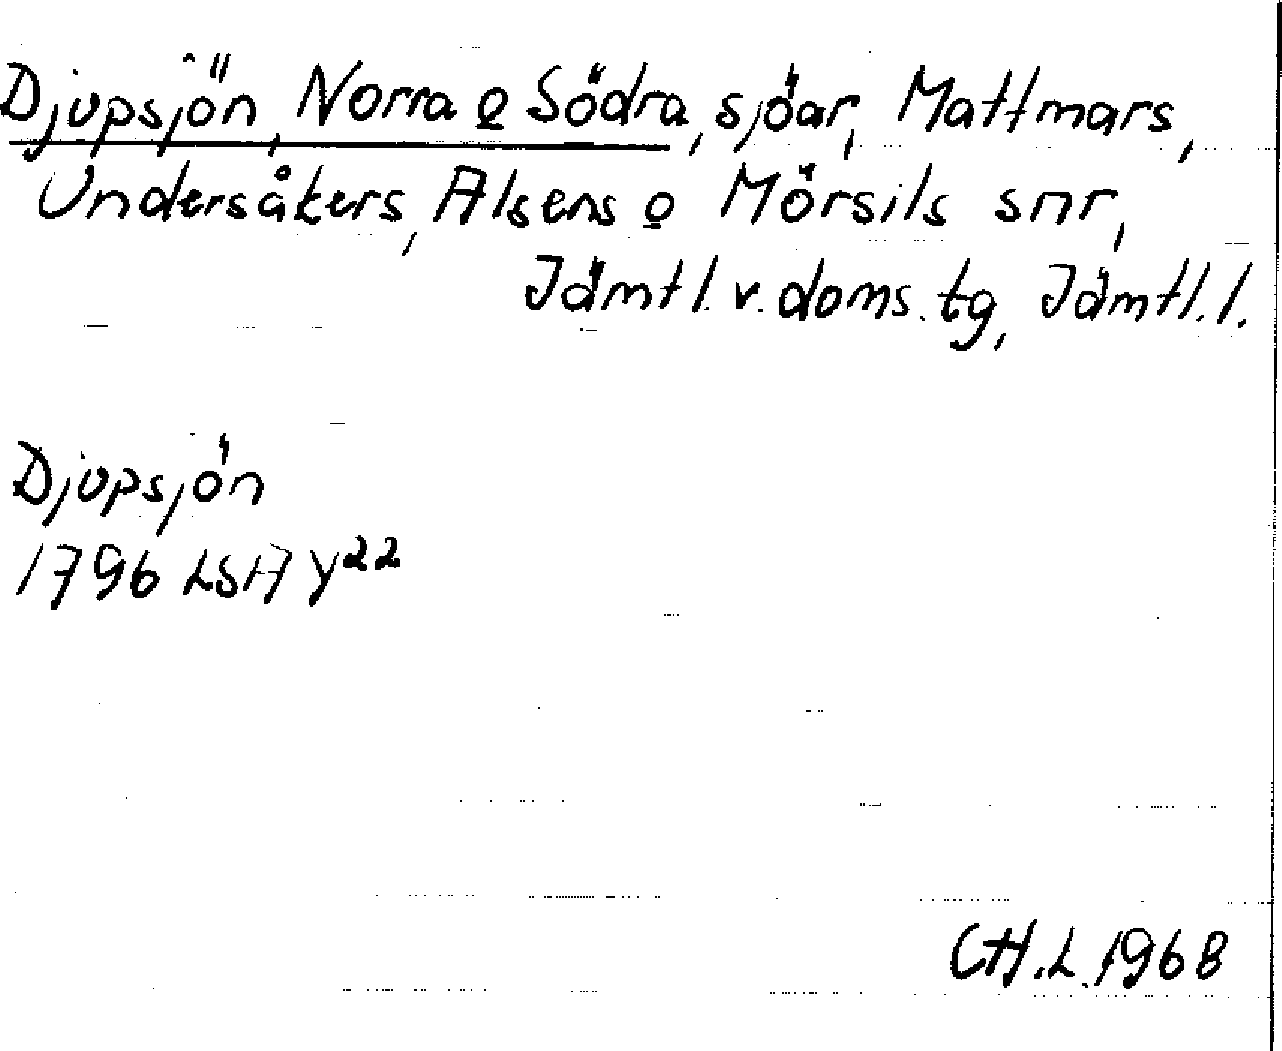 Djupsjön, Norra o Södra, sjöar, Mattmars,
Undersåkers, Alsens o Mörsils snr,
Jämtl. v. doms. tg, Jämtl. l.
Djupsjön
1796 LSA Y²²
CH.L. 1968